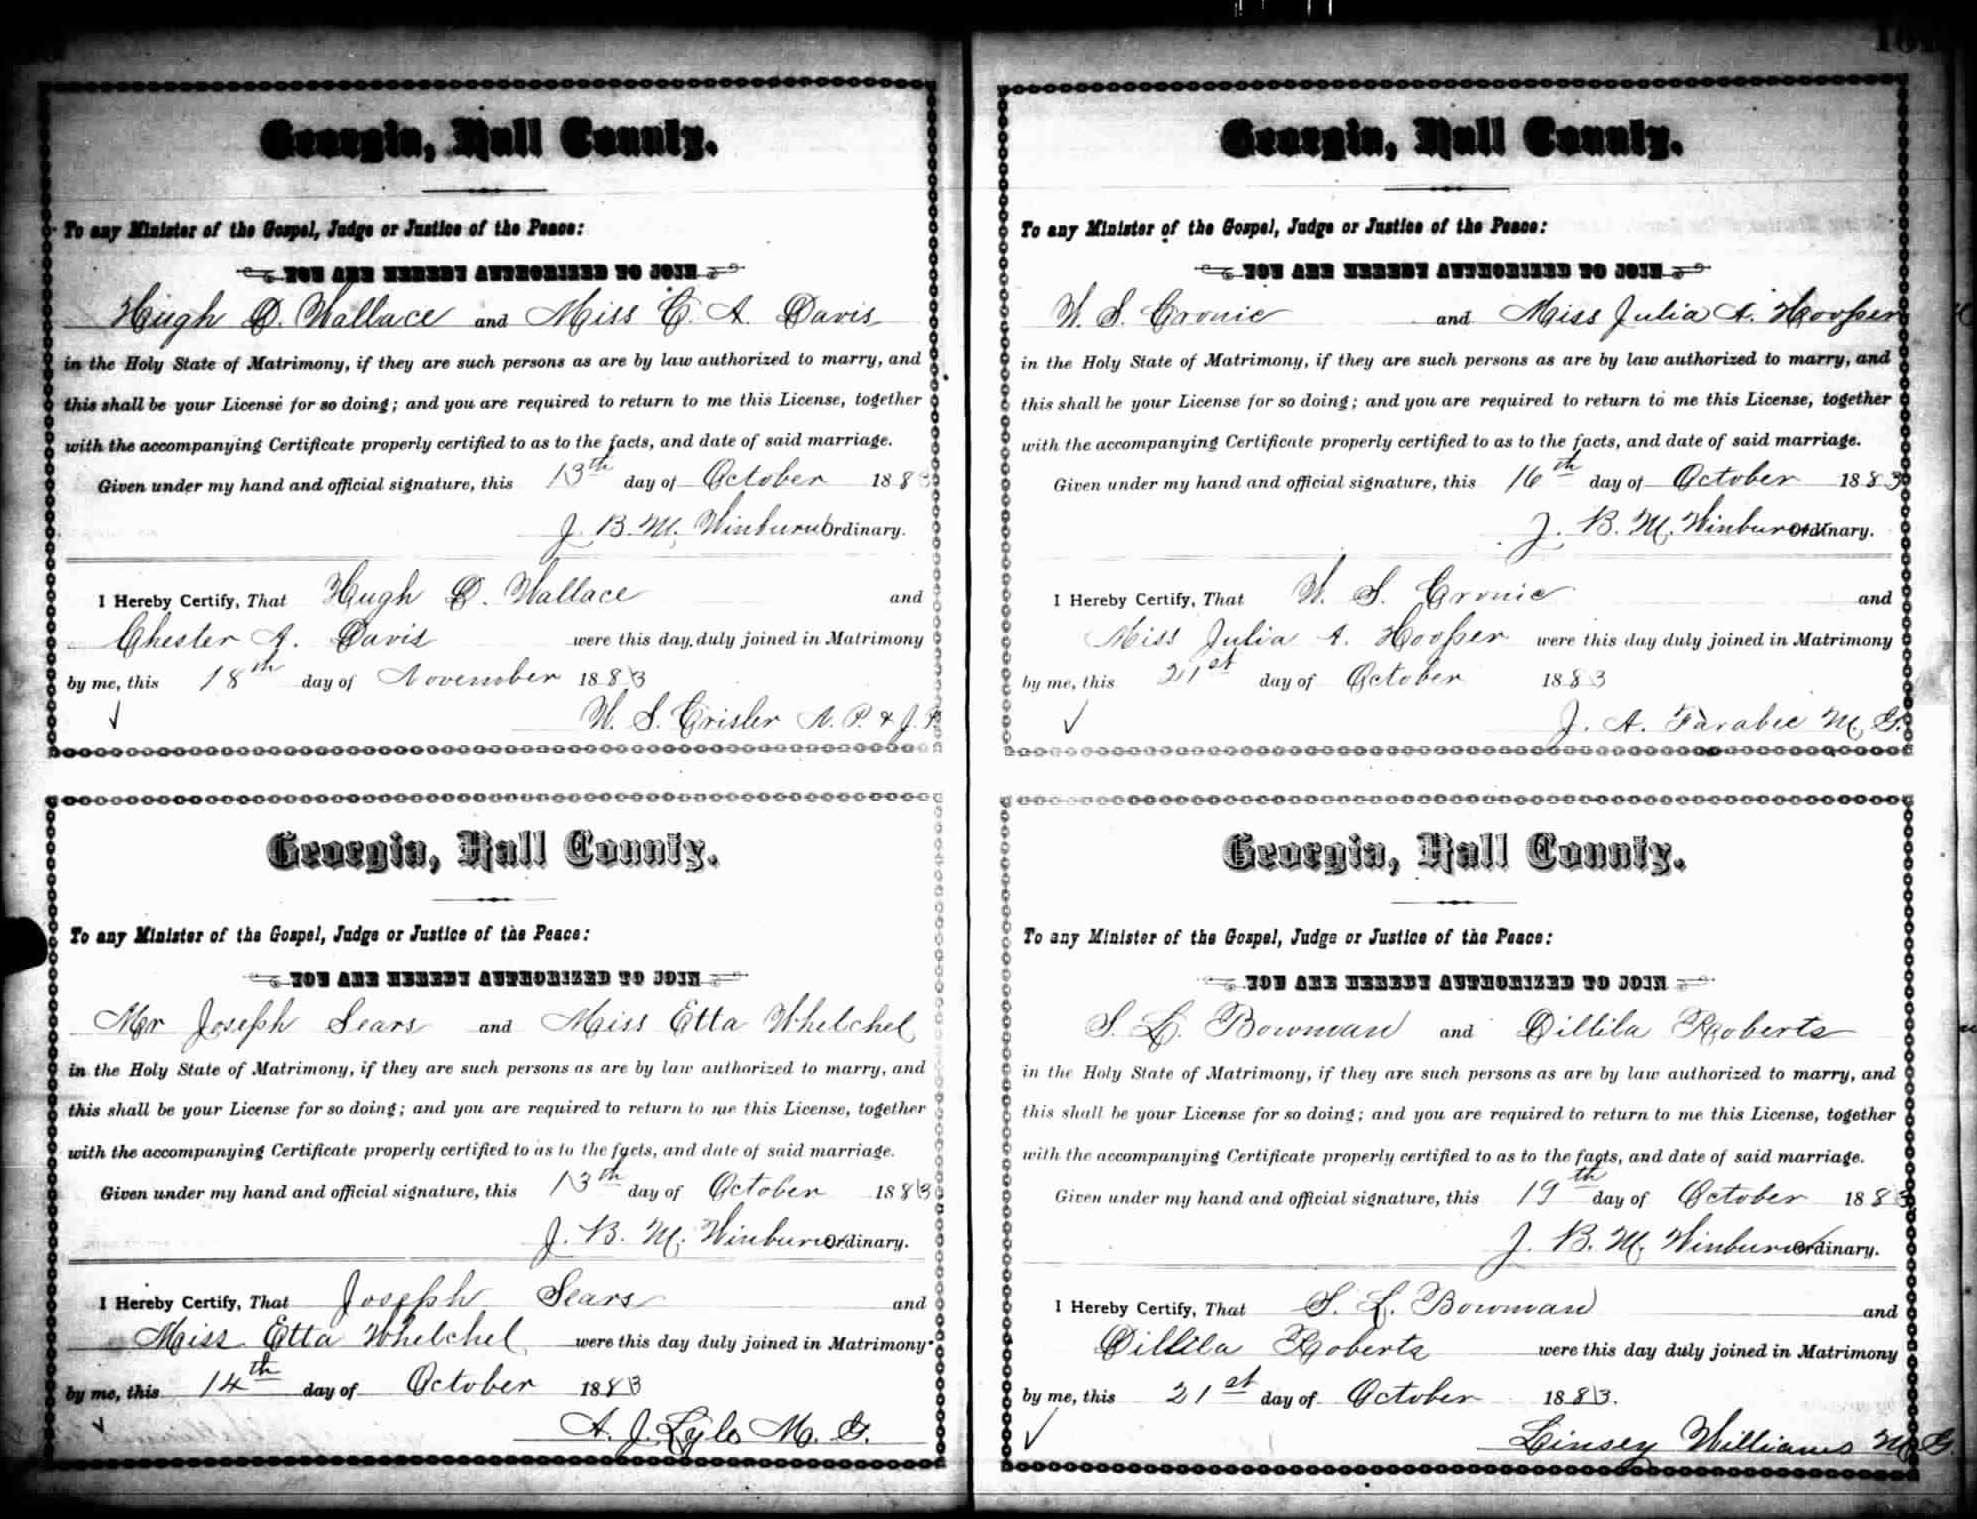 Georgia, Hall County.
To any Minister of the Gospel, Judge or Justice of the Peace:
YOU ARE HEREBY AUTHORIZED TO JOIN
Hugh D. Wallace and Miss C. A. Davis
in the Holy State of Matrimony, if they are such persons as are by law authorized to marry, and
this shall be your License for so doing; and you are required to return to me this License, together
with the accompanying Certificate properly certified to as to the facts, and date of said marriage.
Given under my hand and official signature, this 13th day of October 1883
J. B. M. Winburn Ordinary.
I Hereby Certify, That Hugh D. Wallace and
Chester A. Davis were this day duly joined in Matrimony
by me, this 18th day of November 1883
W. S. Crisler N. P. & J. P.
Georgia, Hall County.
To any Minister of the Gospel, Judge or Justice of the Peace:
YOU ARE HEREBY AUTHORIZED TO JOIN
Mr Joseph Sears and Miss Etta Whelchel
in the Holy State of Matrimony, if they are such persons as are by law authorized to marry, and
this shall be your License for so doing; and you are required to return to me this License, together
with the accompanying Certificate properly certified to as to the facts, and date of said marriage.
Given under my hand and official signature, this 13th day of October 1883
J. B. M. Winburn Ordinary.
I Hereby Certify, That Joseph Sears and
Miss Etta Whelchel were this day duly joined in Matrimony
by me, this 14th day of October 1883
A. J. Lyle M. G.
Georgia, Hall County.
To any Minister of the Gospel, Judge or Justice of the Peace:
YOU ARE HEREBY AUTHORIZED TO JOIN
W. S. Cronic and Miss Julia A. Hooper
in the Holy State of Matrimony, if they are such persons as are by law authorized to marry, and
this shall be your License for so doing; and you are required to return to me this License, together
with the accompanying Certificate properly certified to as to the facts, and date of said marriage.
Given under my hand and official signature, this 16th day of October 1883
J. B. M. Winburn Ordinary.
I Hereby Certify, That W. S. Cronic and
Miss Julia A. Hooper were this day duly joined in Matrimony
by me, this 21st day of October 1883
J. A. Farabee M. G.
Georgia, Hall County.
To any Minister of the Gospel, Judge or Justice of the Peace:
YOU ARE HEREBY AUTHORIZED TO JOIN
S. L. Bowman and Dillila Roberts
in the Holy State of Matrimony, if they are such persons as are by law authorized to marry, and
this shall be your License for so doing; and you are required to return to me this License, together
with the accompanying Certificate properly certified to as to the facts, and date of said marriage.
Given under my hand and official signature, this 19th day of October 1883
J. B. M. Winburn Ordinary.
I Hereby Certify, That S. L. Bowman and
Dillila Roberts were this day duly joined in Matrimony
by me, this 21st day of October 1883.
Linsey Williams M. G.